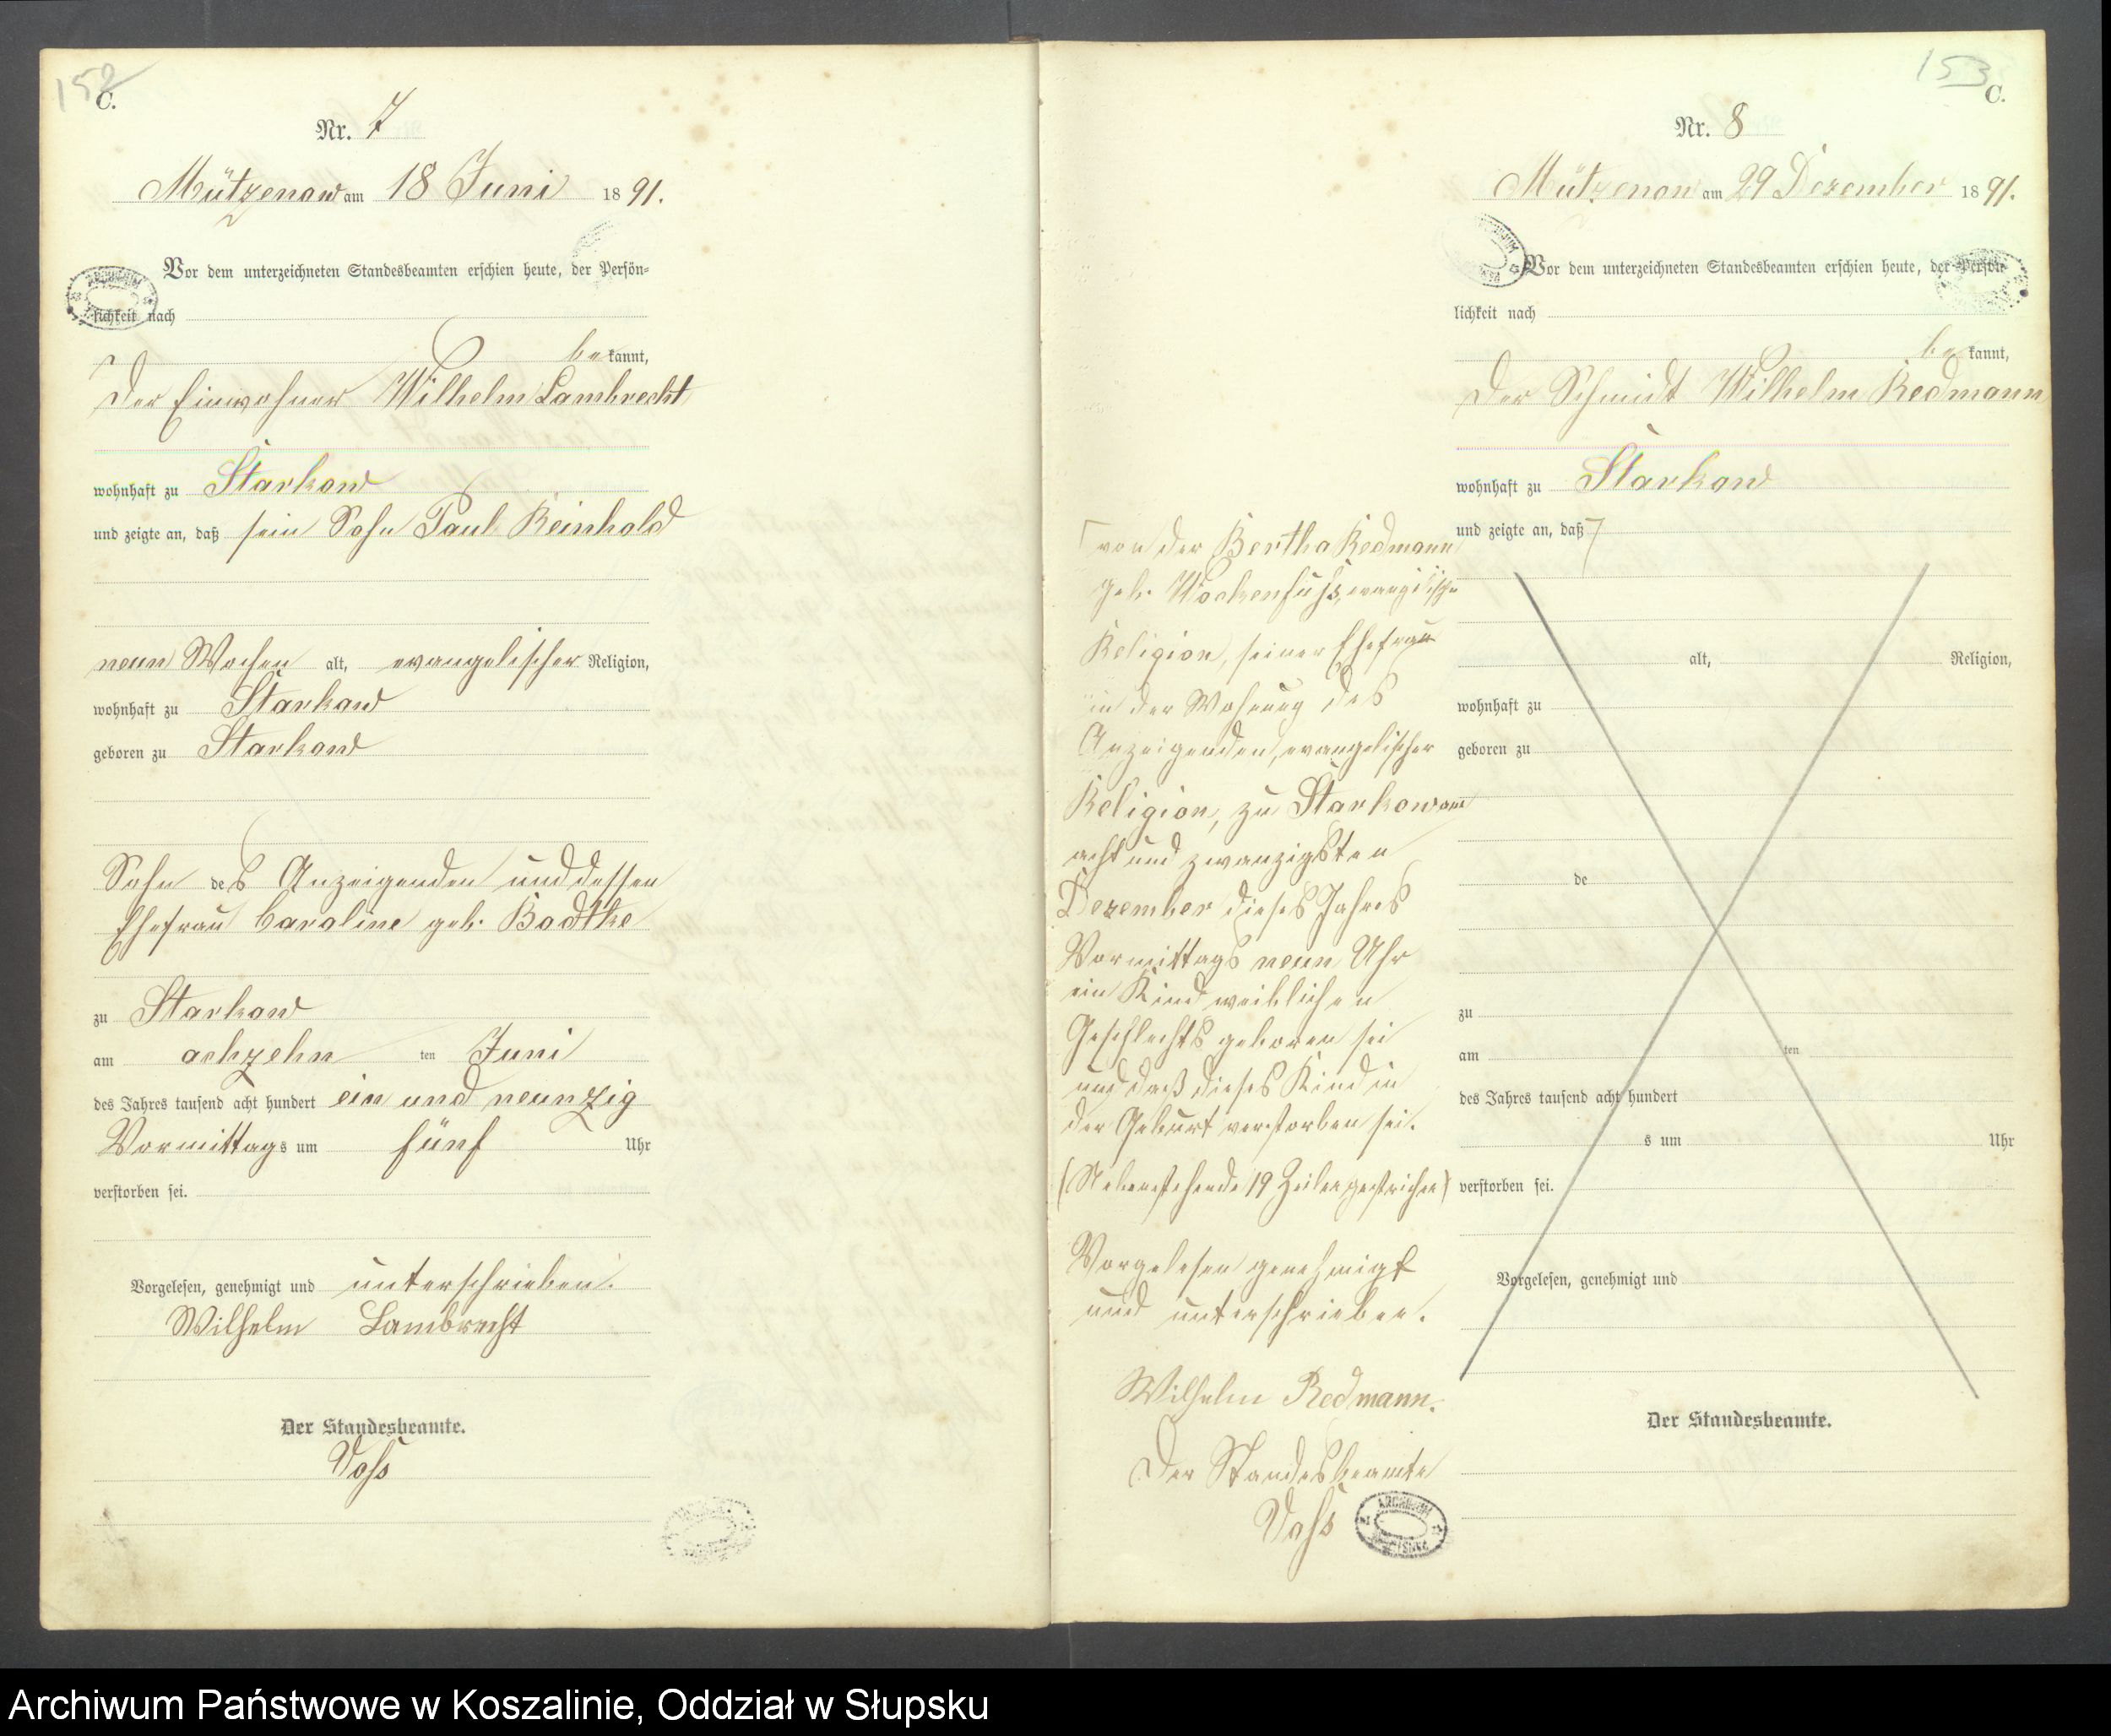 152
C.
Nr. 7
Mützenow am 18 Juni 1891.
Vor dem unterzeichneten Standesbeamten erschien heute, der Persön-
lichkeit nach
bekannt,
der Einwohner Wilhelm Lambrecht
wohnhaft zu Starkow
und zeigte an, daß sein Sohn Paul Reinhold
neun Wochen alt, evangelischer Religion,
wohnhaft zu Starkow
geboren zu Starkow
Sohn des Anzeigenden und dessen
Ehefrau Caroline geb. Badtke
zu Starkow
am achzehn ten Juni
des Jahres tausend acht hundert ein und neunzig
Vormittags um fünf Uhr
verstorben sei.
Vorgelesen, genehmigt und unterschrieben.
Wilhelm Lambrecht
Der Standesbeamte.
Voss
153
C.
Nr. 8
Mützenow am 29 Dezember 1891.
Vor dem unterzeichneten Standesbeamten erschien heute, der Persön-
lichkeit nach
bekannt,
der Schmidt Wilhelm Redmann
wohnhaft zu Starkow
und zeigte an, daß
von der Bertha Redmann
geb. Wockenfuss, evangelischer
Religion, seiner Ehefrau
in der Wohnung des
Anzeigenden, evangelischer
Religion, zu Starkow am
acht und zwanzigsten
Dezember dieses Jahres
Vormittags neun Uhr
ein Kind weiblichen
Geschlechts geboren sei
und daß dieses Kind in
der Geburt verstorben sei.
(Nebenstehende 19 Zeilen gestrichen)
Vorgelesen genehmigt
und unterschrieben.
Wilhelm Redmann.
Der Standesbeamte
Voss
alt, Religion,
wohnhaft zu
geboren zu
de
zu
am ten
des Jahres tausend acht hundert
s um Uhr
verstorben sei.
Vorgelesen, genehmigt und
Der Standesbeamte.
Archiwum Państwowe w Koszalinie, Oddział w Słupsku